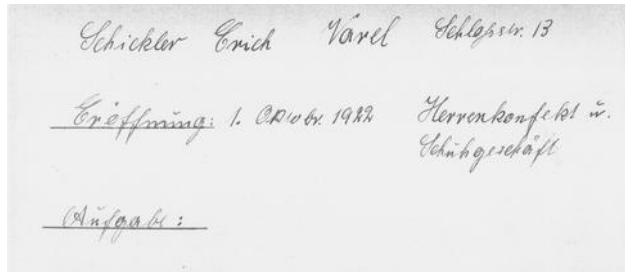 Schickler Erich Varel Schloßstr. 13
Eröffnung: 1. Oktobr. 1922 Herrenkonfekt u.
Schuhgeschäft
Aufgabe: